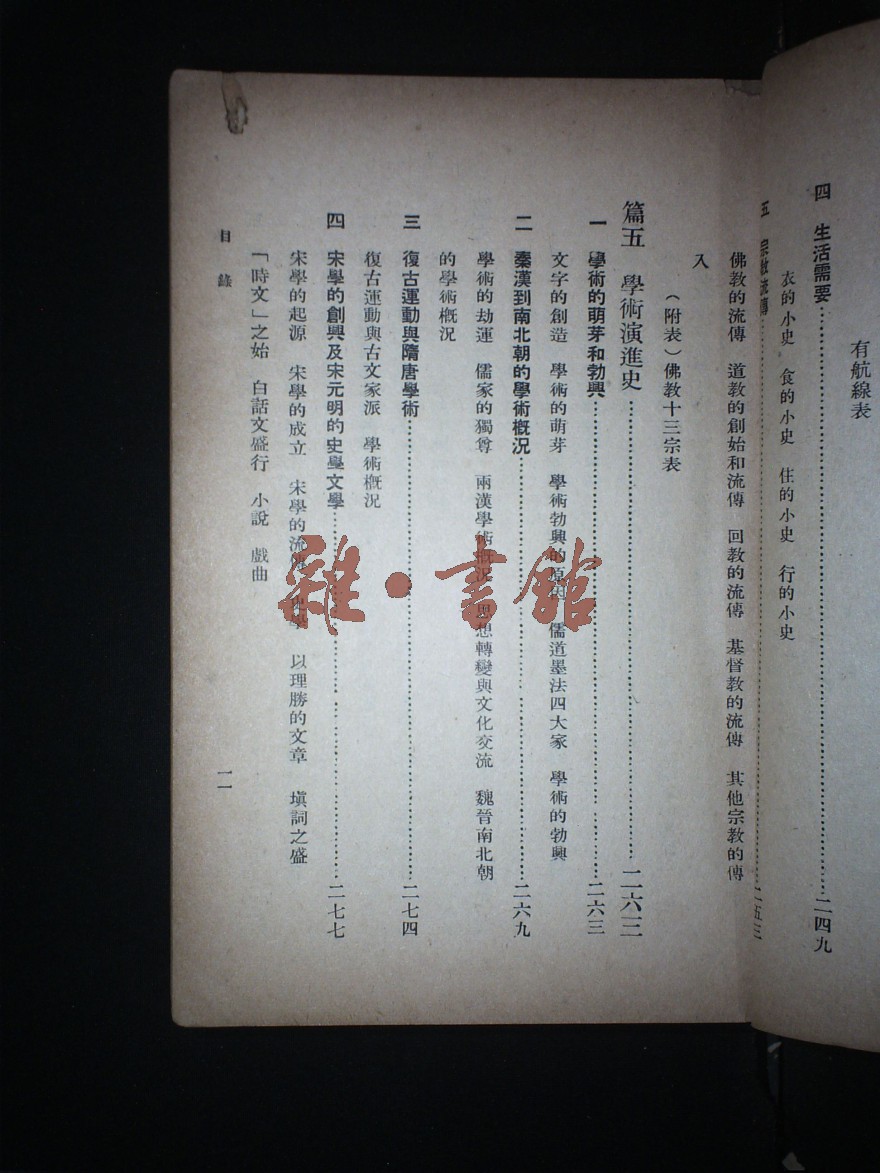 有航線表
四 生活需要……………二四九
衣的小史 食的小史 住的小史 行的小史
五 宗教流傳……………二五三
佛教的流傳 道教的創始和流傳 回教的流傳 基督教的流傳 其他宗教的傳
入
（附表）佛教十三宗表
篇五 學術演進史……………二六三
一 學術的萌芽和勃興……………二六三
文字的創造 學術的萌芽 學術勃興的原因 儒道墨法四大家 學術的勃興
二 秦漢到南北朝的學術概況……………二六九
學術的劫運 儒家的獨尊 兩漢學術概況 思想轉變與文化交流 魏晉南北朝
的學術概況
三 復古運動與隋唐學術……………二七四
復古運動與古文家派 學術概況
四 宋學的創興及宋元明的史學文學……………二七七
宋學的起源 宋學的成立 宋學的流傳 史學 以理勝的文章 塡詞之盛
「時文」之始 白話文盛行 小說 戲曲
目錄
一一
雜·書館